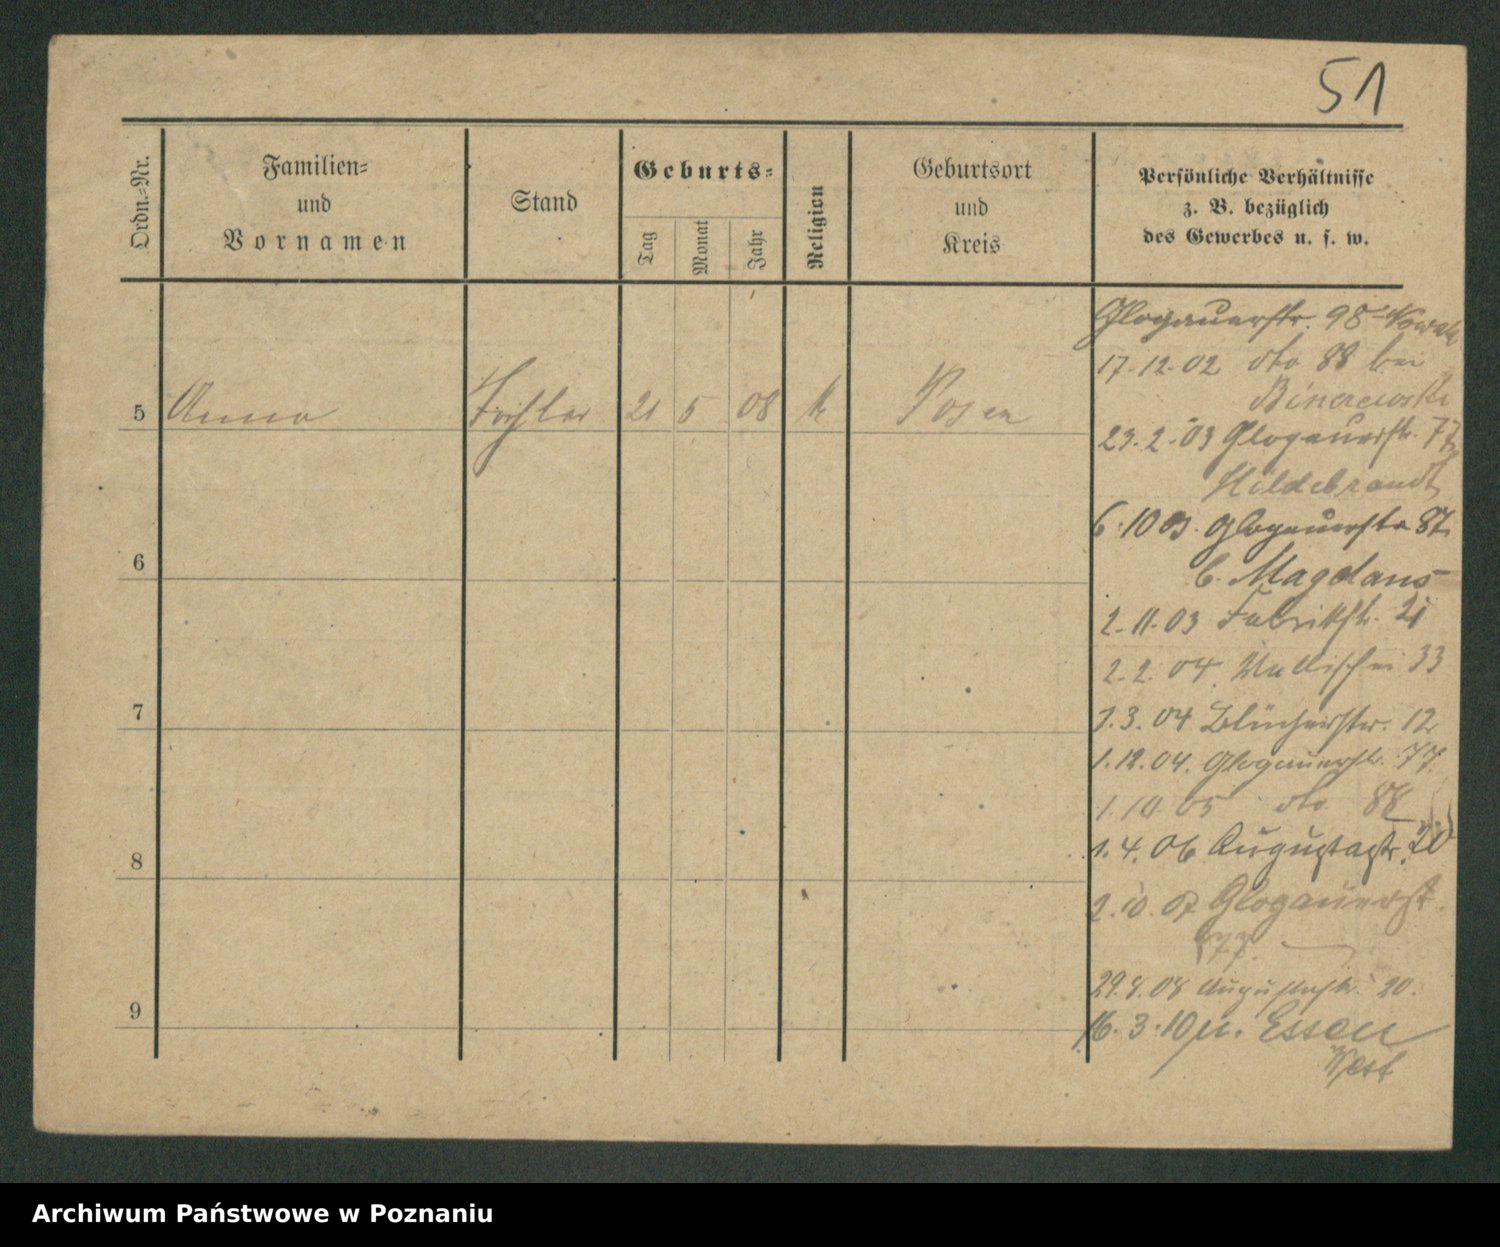 51
Ordn.-Nr.
Familien-
und
Vornamen
Stand
Geburts-
Tag
Monat
Jahr
Religion
Geburtsort
und
Kreis
Persönliche Verhältnisse
z. B. bezüglich
des Gewerbes u. s. w.
Glogauerstr. 98
17.12.02 dto 88 bei
5 Anna Tochter 21 5 08 k Posen
23.2.03 Glogauerstr. 77
Hildebrandt
6.10 03. Glogauerstr 87
b. Magdans
6
2.11.03 Fabrikstr. 21
2.2.04 Wallischei 33
7
1.3.04 Blücherstr. 12
1.12.04. Glogauerstr. 77
1.10 05 dto 88
8
1.4.06 Augustastr. 20
2.10.07 Glogauerst.
77.
29.8.08 Augustastr. 20.
9
16.3.10 n. Essen
West
Archiwum Państwowe w Poznaniu